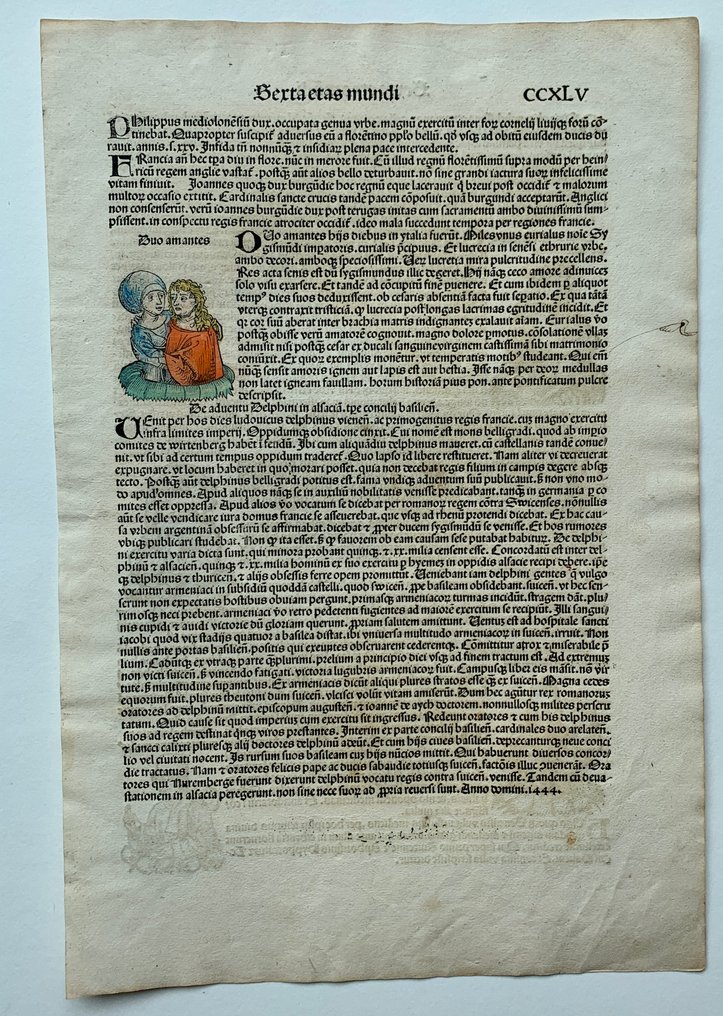 Sexta etas mundi CCXLV
Philippus mediolonēsiū dux. occupata genua vrbe. magnū exercitū inter foꝝ cornelij liuijqꝫ forū cō-
tinebat. Quapropter suscipit᷑ aduersus eū a florētino pplo bellū. qđ vsqꝫ ad obitū eiusdem ducis du
rauit. annis. s. xxv. Infida tn̄ nonnūqꝫ ⁊ insidiaꝝ plena pace intercedente.
FRancia añ hec tꝑa diu in flore. nūc in merore fuit. Cū illud regnū florētissimū supra modū per hein/
ricū regem anglie vastat᷑. postqꝫ aūt alios bello deturbauit. nō sine grandi iactura suoꝝ infelicissime
vitam finiuit. Joannes quoqꝫ dux burgūdie hoc regnū eque lacerauit qͥ breui post occidit᷑ ⁊ malorum
multoꝝ occasio extitit. Cardinalis sancte crucis tandē pacem cōposuit. quā burgundi acceptarūt. Anglici
non consenserūt. verū ioannes burgūdie dux post terugas initas cum sacramentū ambo diuinissimū sum-
psissent. in conspectu regis francie atrociter occidit᷑. ideo mala succedunt tempora per regiones francie.
Duo amantes
DUo amantes hijs diebus in ytalia fuerūt. Miles vnus eurialus noīe Sy
gismūdi impatoris. curialis p̄cipuus. Et lucrecia in senēsi ethrurie vrbe.
ambo decori. amboqꝫ speciosissimi. Ueꝝ lucretia mira pulcritudine precellens.
Res acta senis est dū sygismundus illic degeret. Hij nāqꝫ ceco amore adinuicē
solo visu exarsere. Et tandē ad cōcupitū finē puenere. Et cum ibidem p aliquot
tempꝰ dies suos deduxissent. ob cesaris absentiā facta fuit sepatio. Ex qua tātā
vterqꝫ contraxit tristiciā. qꝫ lucrecia post longas lacrimas egritudinē incidit. Et
qꝛ cor suū aberat inter brachia matris indignantez exalauit aīam. Eurialus v̄o
postqꝫ obisse verū amatorē cognouit. magno dolore pmotus. cōsolationē vllaꝫ
admisit nisi postqꝫ cesar ex ducali sanguine virginem castissimā sibi matrimonio
coniūxit. Ex quoꝝ exemplis monētur. vt temperatis motibꝰ studeant. Qui em̄
nūqꝫ sensit amoris ignem aut lapis est aut bestia. Isse nāqꝫ per deoꝝ medullas
non latet igneam fauillam. horum historiā pius pon. ante pontificatum pulcre
descripsit.
De aduentu Delphini in alsaciā. tp̄e concilij basilieñ.
UEnit per hos dies ludouicus delphinus vienen̄. ac primogenitus regis francie. cuꝫ magno exercitu
infra limites imperij. Oppidumqꝫ obsidione cinxit. Cui nomē est mons belligradi. quod ab impio
comites de wirtenberg habēt ī feudū. Ibi cum aliquādiu delphinus maueret. cū castellanis tandē conue/
nit. vt sibi ad certum tempus oppidum traderet᷑. Quo lapso id libere restitueret. Nam aliter vi decreuerat
expugnare. vt locum haberet in quo morari posset. quia non decebat regis filium in campis degere absqꝫ
tecto. Postqꝫ aūt delphinus belligradi potitus est. fama vndiqꝫ aduentum suū publicauit. ꝫ non vno mo-
do apud omnes. Apud aliquos nāqꝫ se in auxiliū nobilitatis venisse predicabant. tanqꝫ in germania p co
mites esset oppressa. Apud alios v̄o vocatum se dicebat per romanoꝝ regem cōtra Swicenses. nōnullis
aūt se velle vendicare iura domus francie se asseuerebat. que vsqꝫ ad rhenū protendi dicebat. Ex hac cau-
sa vrbem argentinā obsessurū se affirmabat. dicebat ⁊ ꝓpter ducem sygismūdū se venisse. Et hos rumores
vbiqꝫ publicari studebat. Non qꝫ ita esset. ꝫ qꝫ fauorem ob eam causam sese putabat habitur. De delphi-
ni exercitu varia dicta sunt. qui minora probant quinqꝫ. ⁊ .xx. milia censent esse. Concordatū est inter del-
phinū ⁊ alsacien̄. quinqꝫ ⁊ .xx. milia hominū ex suo exercitu p hyemez in oppidis alsacie recipi debere. ip̄e
qꝫ delphinus ⁊ thuricen̄. ⁊ alijs obsessis ferre opem promittūt. Ueniebant iam delphini gentes qͥ vulgo
vocantur armeniaci in subsidiū quoddā castelli. quod swicen̄. ꝓpe basileam obsidebant. suicen̄. vt hec sen-
serunt non expectatis hostibus obuiam pergunt. primasqꝫ armeniacoꝝ turmas incidūt. stragem dāt. plu/
rimosqꝫ neci prebent. armeniaci v̄o retro pedetenti fugientes ad maiorē exercitum se recipiūt. Illi sangui
nis cupidi ⁊ auidi victorie dū gloriam querunt. ꝓpriam salutem amittunt. Uentus est ad hospitale sancti
iacobi quod vix stadijs quatuor a basilea distat. ibi vniuersa multitudo armeniacoꝝ in suicen̄. irruit. Non
nullis ante portas basilien̄. positis qui exeuntes obseruarent cederentqꝫ. Cōmittitur atrox ⁊ miserabile p̄
lium. Cadūtqꝫ ex vtraqꝫ parte qꝫplurimi. prelium a principio diei vsqꝫ ad finem tractum est. Ad extremuꝫ
non victi suicen̄. ꝫ vincendo fatigati. victoria lugubris armeniacoꝝ fuit. Campusqꝫ liber eis māsit. nō vir
tute. ꝫ multitudine supantibus. Ex armeniacis dicūt aliqui plures stratos esse qꝫ ex suicen̄. Magna cedes
equorum fuit. plures theutoni dum suicen̄. vlcisci volūt vitam amiserūt. Dum hec agūtur rex romanoruꝫ
oratores ad delphinū mittit. episcopum augusten̄. ⁊ ioannē de aych doctorem. nonnullosqꝫ milites perscru
tatum. Quid cause sit quod imperius cum exercitu sit ingressus. Redeunt oratores ⁊ cum his delphinus
suos ad regem destinat qͥnqꝫ viros prestantes. Interim ex parte concilij basilien̄. cardinales duo arelaten̄.
⁊ sancti calixti pluresqꝫ alij doctores delphinū adeūt. Et cum hijs ciues basilien̄. deprecanturqꝫ neue conci
lio vel ciuitati nocent. Is rursum suos basileam cuꝫ hijs nūcios mittit. Qui habuerunt diuersos concor/
die tractatus. Nam ⁊ oratores felicis pape ac ducis sabaudie totiusqꝫ suicen̄. factōis illuc ꝯuenerāt. Ora
tores qui Nuremberge fuerunt dixerunt delphinū vocatu regis contra suicen̄. venisse. Tandem cū deua-
stationem in alsacia peregerunt. non sine nece suoꝝ ad ꝓpria reuersi sunt. Anno domini. 1444.